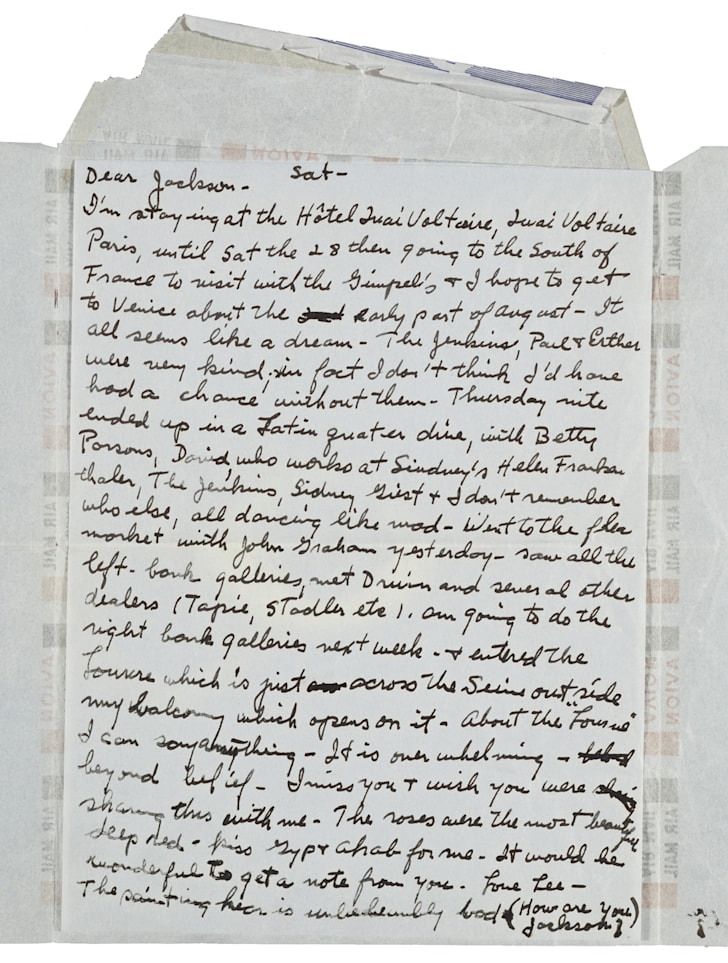 Sat -
Dear Jackson -
I'm staying at the Hôtel Quai Voltaire, Quai Voltaire
Paris, until Sat the 28 then going to the South of
France to visit with the Gimpel's & I hope to get
to Venice about the early part of august - It
all seems like a dream - The Jenkins, Paul & Esther
were very kind; in fact I don't think I'd have
had a chance without them - Thursday nite
ended up in a Latin quarter dive, with Betty
Parsons, David, who works at Sindney's Helen Franken
thaler, The Jenkins, Sidney Giest & I don't remember
who else, all dancing like mad - Went to the flea
market with John Graham yesterday - saw all the
left - bank galleries, met Druin and several other
dealers (Tapie, Stadler etc). am going to do the
right bank galleries next week - & entered the
Louvre which is just across the Seine outside
my balcony which opens on it - About the "Louvre"
I can say anything - It is over whelming -
beyond belief - I miss you & wish you were
sharing this with me - The roses were the most beautiful
deep red - kiss Gyp & Ahab for me - It would be
wonderful to get a note from you. Love Lee -
The painting hear is unbelievably bad (How are you
Jackson?)
AIR MAIL
AVION